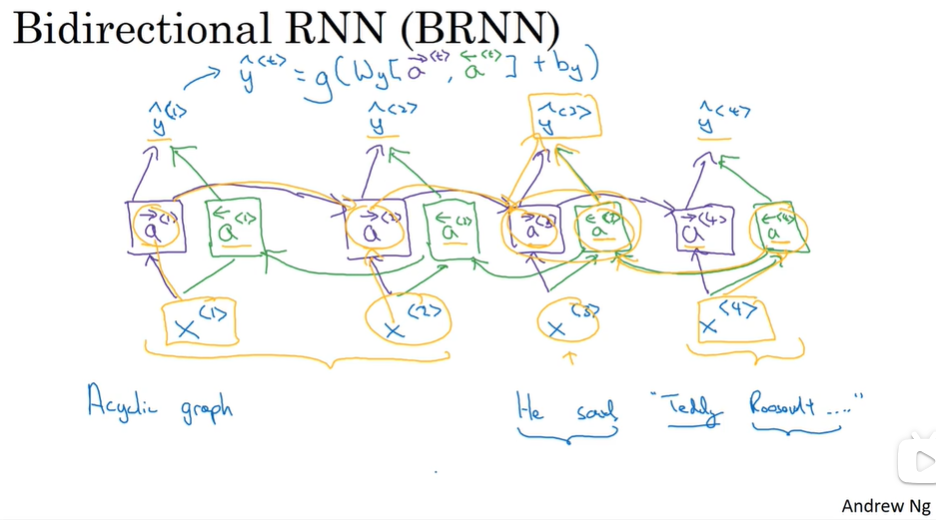 Bidirectional RNN (BRNN)
ŷ<t> = g(Wy[a→<t>, a←<t>] + by)
ŷ<1> ŷ<2> ŷ<3> ŷ<4>
a→<1> a←<1> a→<2> a←<2> a→<3> a←<3> a→<4> a←<4>
x<1> x<2> x<3> x<4>
Acyclic graph
He said "Teddy Roosevelt ...."
Andrew Ng